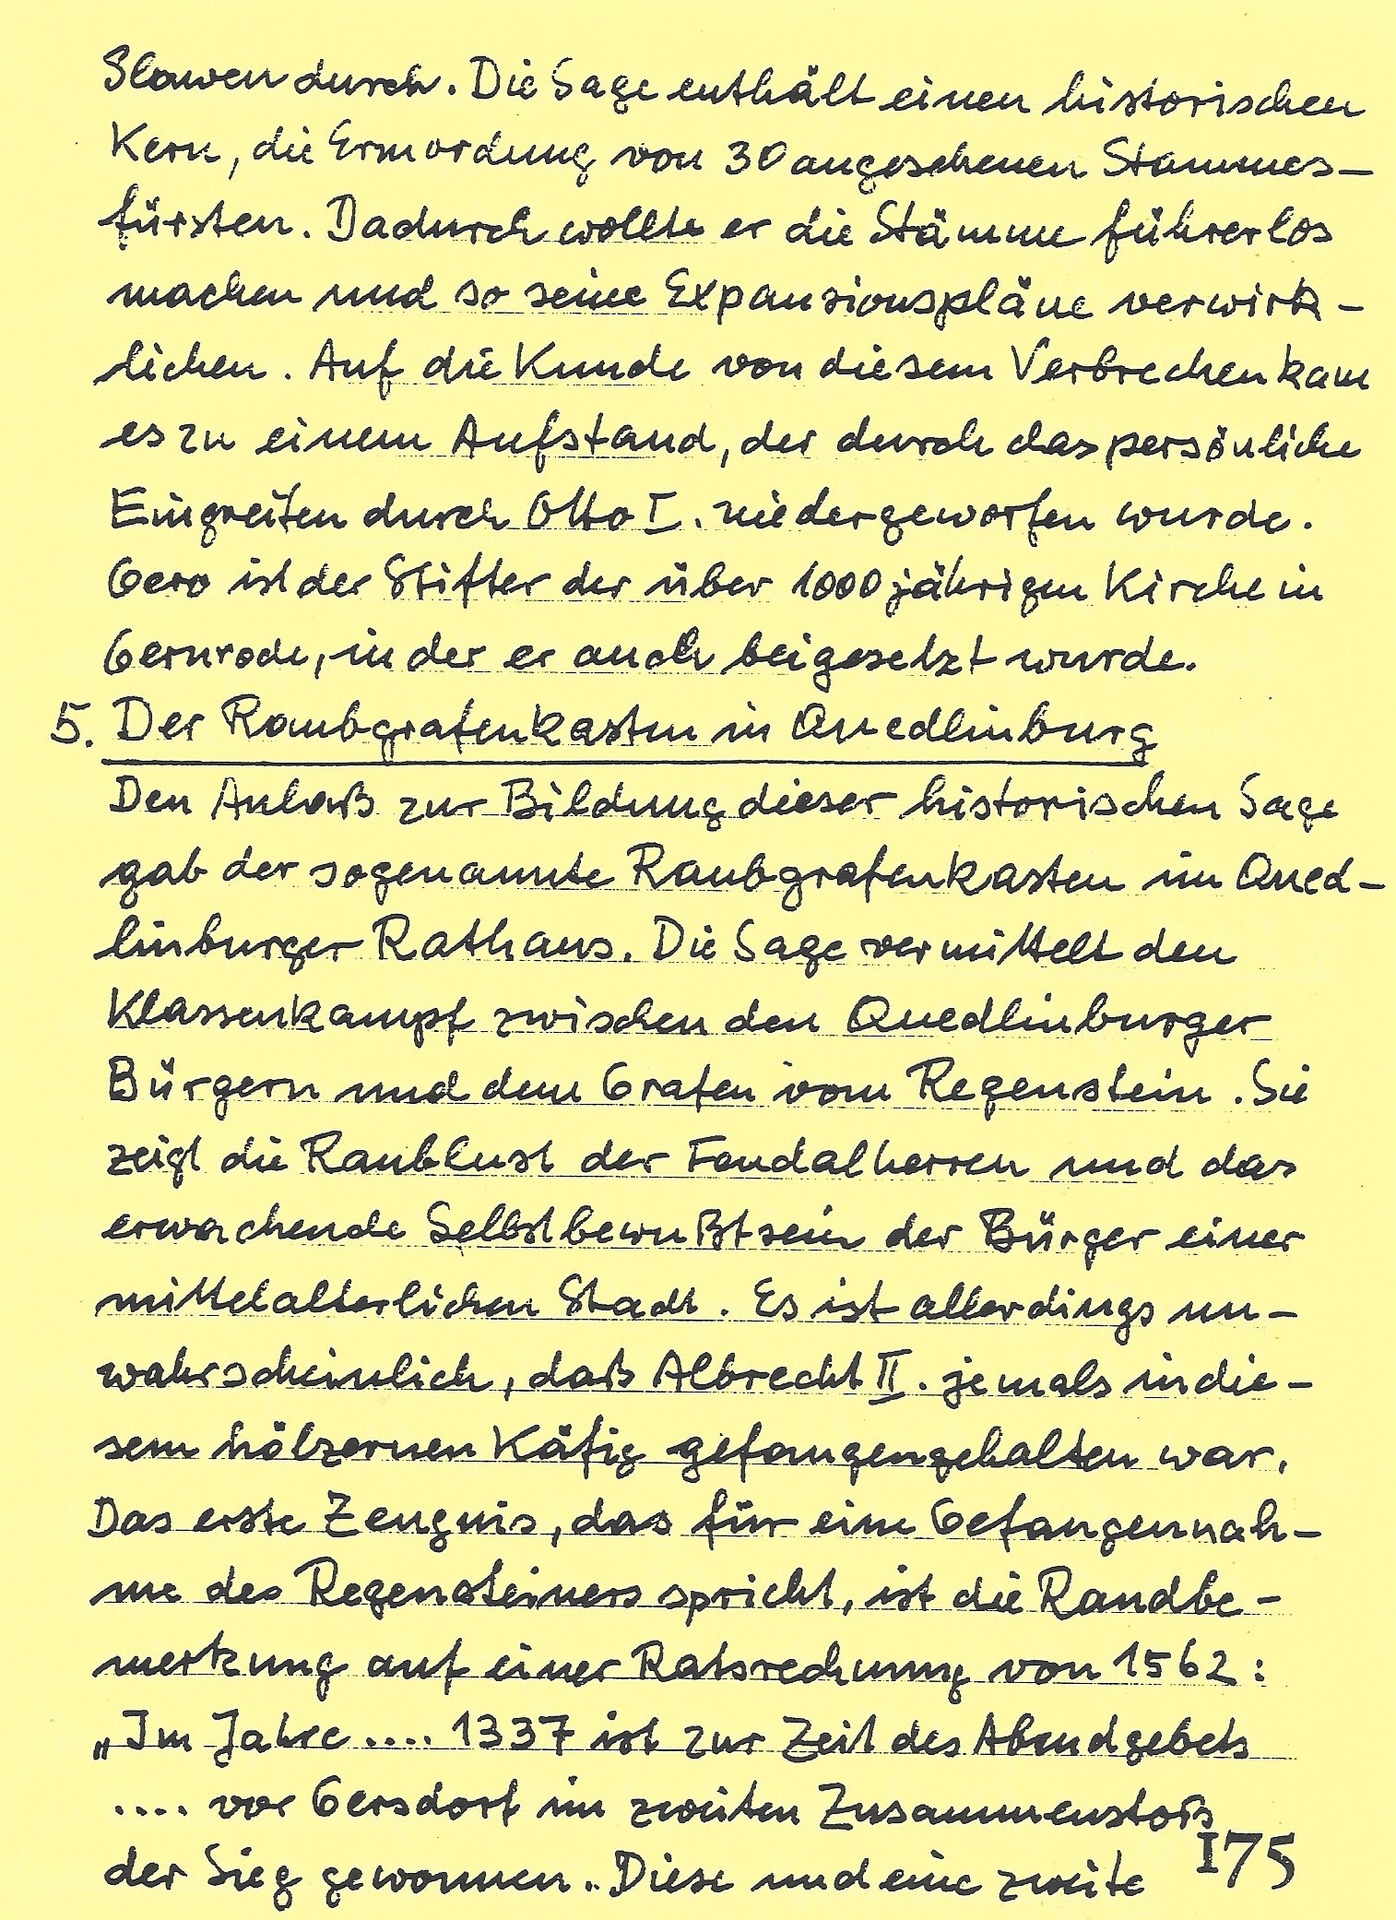 Slawen durch. Die Sage enthält einen historischen
Kern, die Ermordung von 30 angesehenen Stammes-
fürsten. Dadurch wollte er die Stämme führerlos
machen und so seine Expansionspläne verwirk-
lichen. Auf die Kunde von diesem Verbrechen kam
es zu einem Aufstand, der durch das persönliche
Eingreifen durch Otto I. niedergeworfen wurde.
Gero ist der Stifter der über 1000 jährigen Kirche in
Gernrode, in der er auch beigesetzt wurde.
5. Der Raubgrafenkasten in Quedlinburg
Den Anlaß zur Bildung dieser historischen Sage
gab der sogenannte Raubgrafenkasten im Qued-
linburger Rathaus. Die Sage vermittelt den
Klassenkampf zwischen den Quedlinburger
Bürgern und dem Grafen vom Regenstein. Sie
zeigt die Raublust der Feudalherren und das
erwachende Selbstbewußtsein der Bürger einer
mittelalterlichen Stadt. Es ist allerdings un-
wahrscheinlich, daß Albrecht II. jemals in die-
sem hölzernen Käfig gefangengehalten war.
Das erste Zeugnis, das für eine Gefangennah-
me des Regensteiners spricht, ist die Randbe-
merkung auf einer Ratsrechnung von 1562:
„Im Jahre .... 1337 ist zur Zeit des Abendgebets
.... vor Gersdorf im zweiten Zusammenstoß
der Sieg gewonnen.. Diese und eine zweite
175